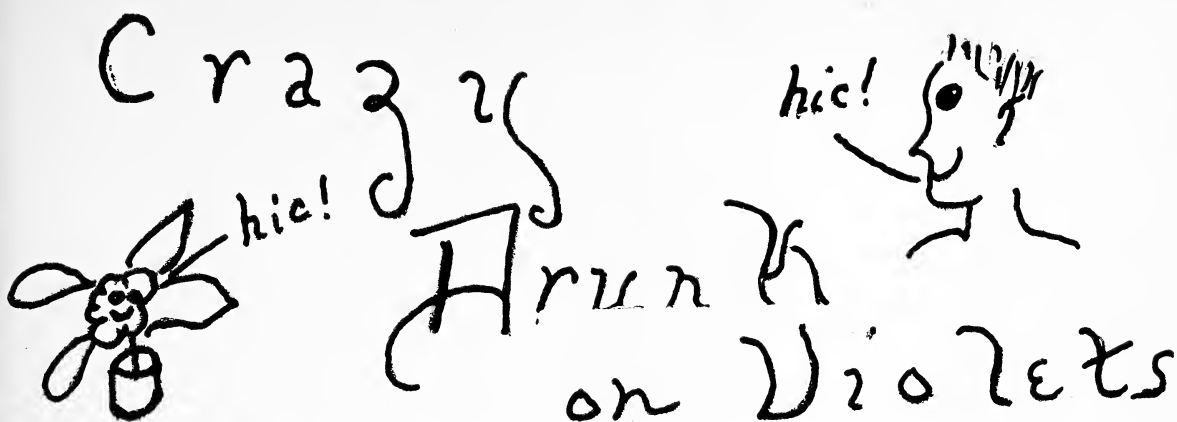 Crazy
hic!
hic!
Drunk
on Violets